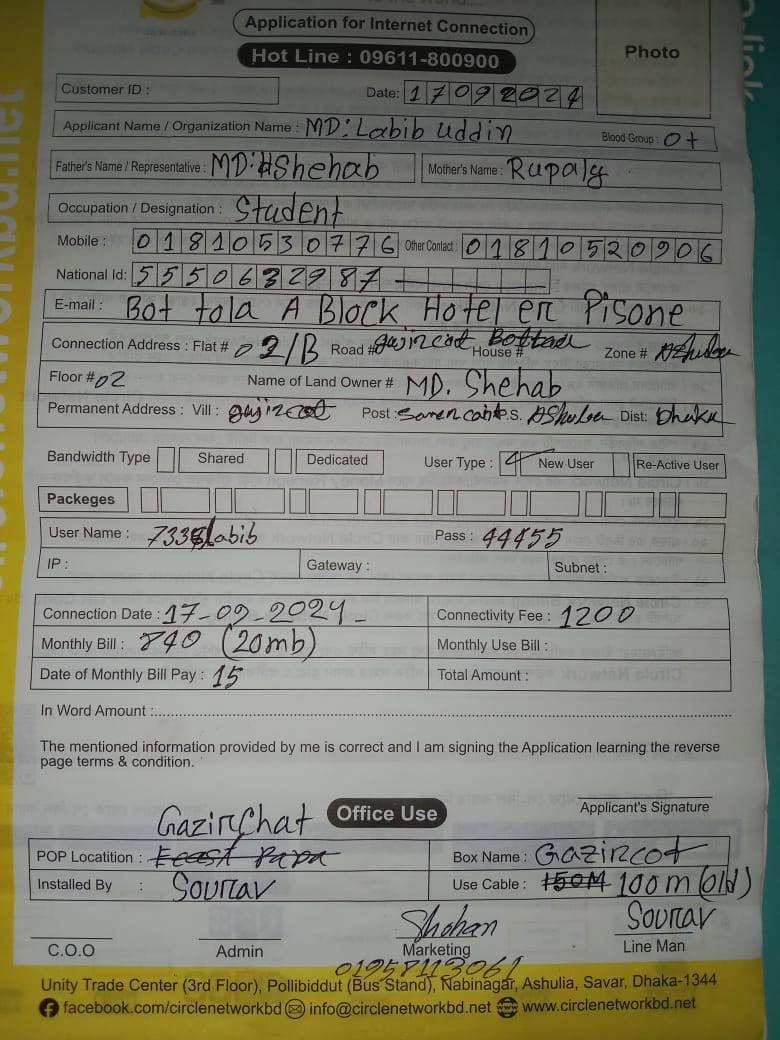 Application for Internet Connection
Hot Line : 09611-800900
Photo
Customer ID :
Date: 17092024
Applicant Name / Organization Name : MD: Labib uddin Blood Group : O+
Father's Name / Representative : MD: Shehab Mother's Name : Rupaly
Occupation / Designation : Student
Mobile : 01810530776 Other Contact : 01810520906
National Id: 5550632987
E-mail : Bot tola A Block Hotel er Pisone
Connection Address : Flat # 02/B Road # gajircot House # Bottala Zone # AShulea
Floor # 02 Name of Land Owner # MD. Shehab
Permanent Address : Vill : gajircot Post : P.S. AShulea Dist: Dhaka
Bandwidth Type Shared Dedicated User Type : New User Re-Active User
Packeges
User Name : Labib Pass : 44455
IP : Gateway : Subnet :
Connection Date : 17-09-2024 Connectivity Fee : 1200
Monthly Bill : 840 (20mb) Monthly Use Bill :
Date of Monthly Bill Pay : 15 Total Amount :
In Word Amount :
The mentioned information provided by me is correct and I am signing the Application learning the reverse
page terms & condition.
Applicant's Signature
Office Use
GazirChat
POP Locatition : Box Name : Gazircot
Installed By : Sourav Use Cable : 150M 100m (old)
Shohan Sourav
C.O.O Admin Marketing Line Man
01958113061
Unity Trade Center (3rd Floor), Pollibiddut (Bus Stand), Nabinagar, Ashulia, Savar, Dhaka-1344
facebook.com/circlenetworkbd info@circlenetworkbd.net www.circlenetworkbd.net